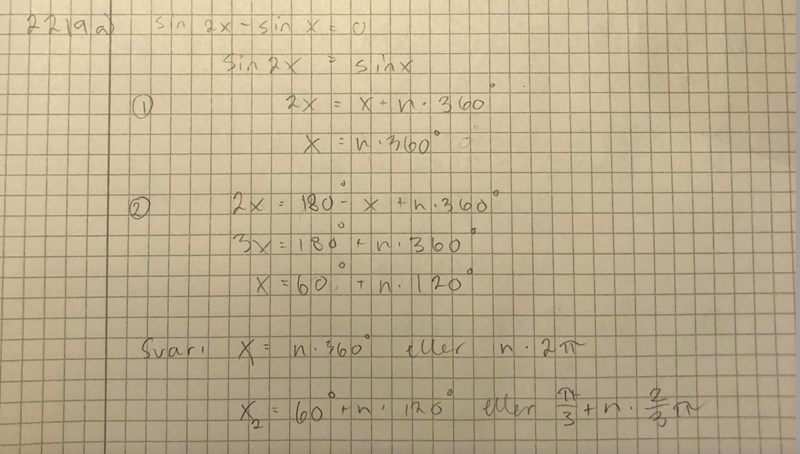 2219a) sin 2x - sin x = 0
sin 2x = sin x
① 2x = x + n · 360°
x = n · 360°
② 2x = 180° - x + n · 360°
3x = 180° + n · 360°
x = 60° + n · 120°
Svar: x = n · 360° eller n · 2π
x₂ = 60° + n · 120° eller π/3 + n · 2/3 π